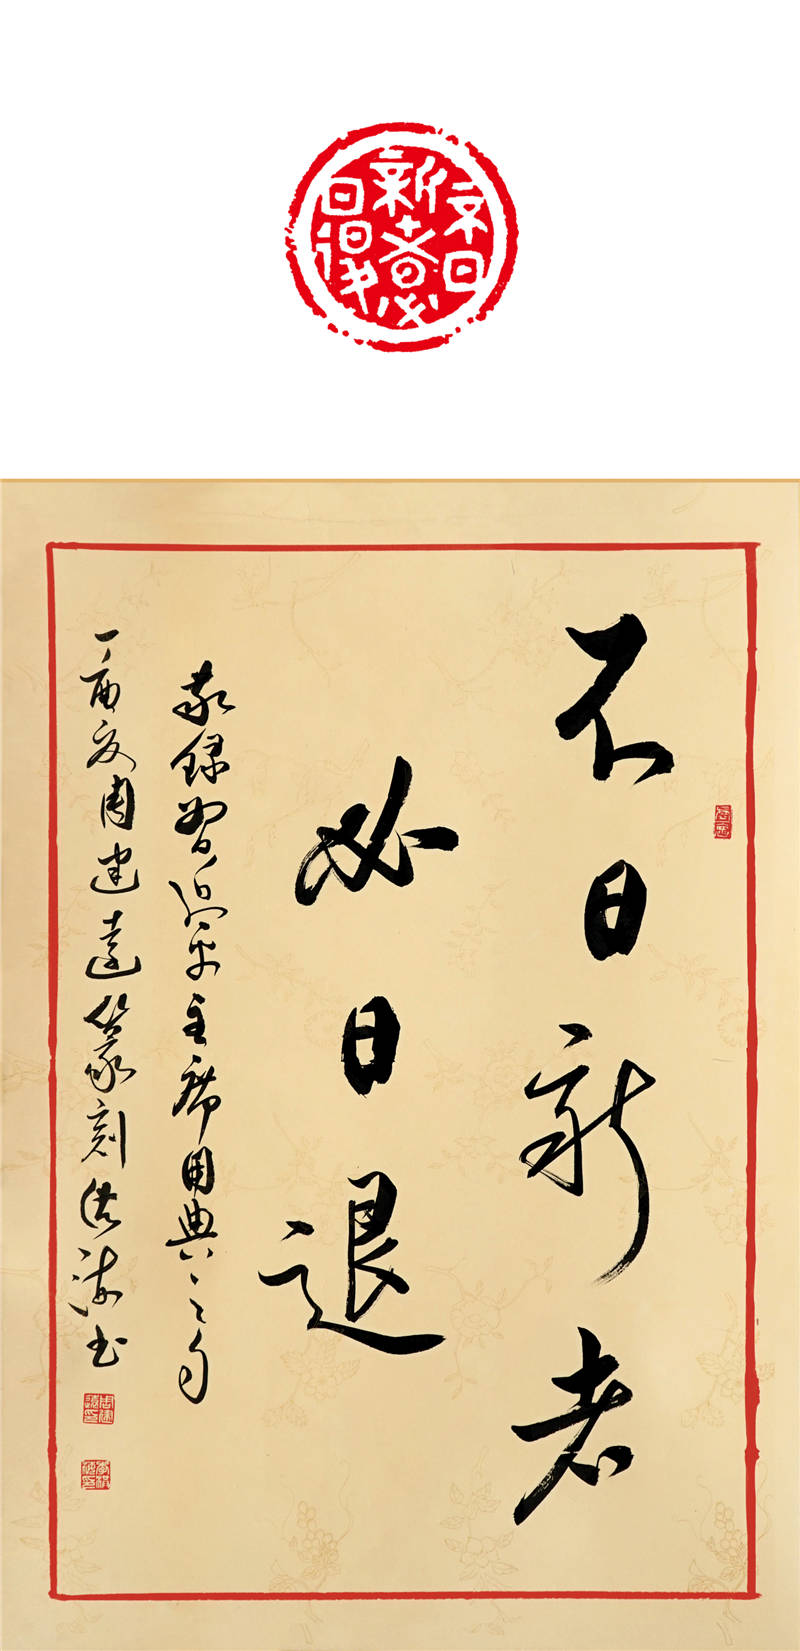 不日
新者必
日退
不日新者
必日退
敬録習近平主席用典之句
丁酉夏周建遠篆刻书